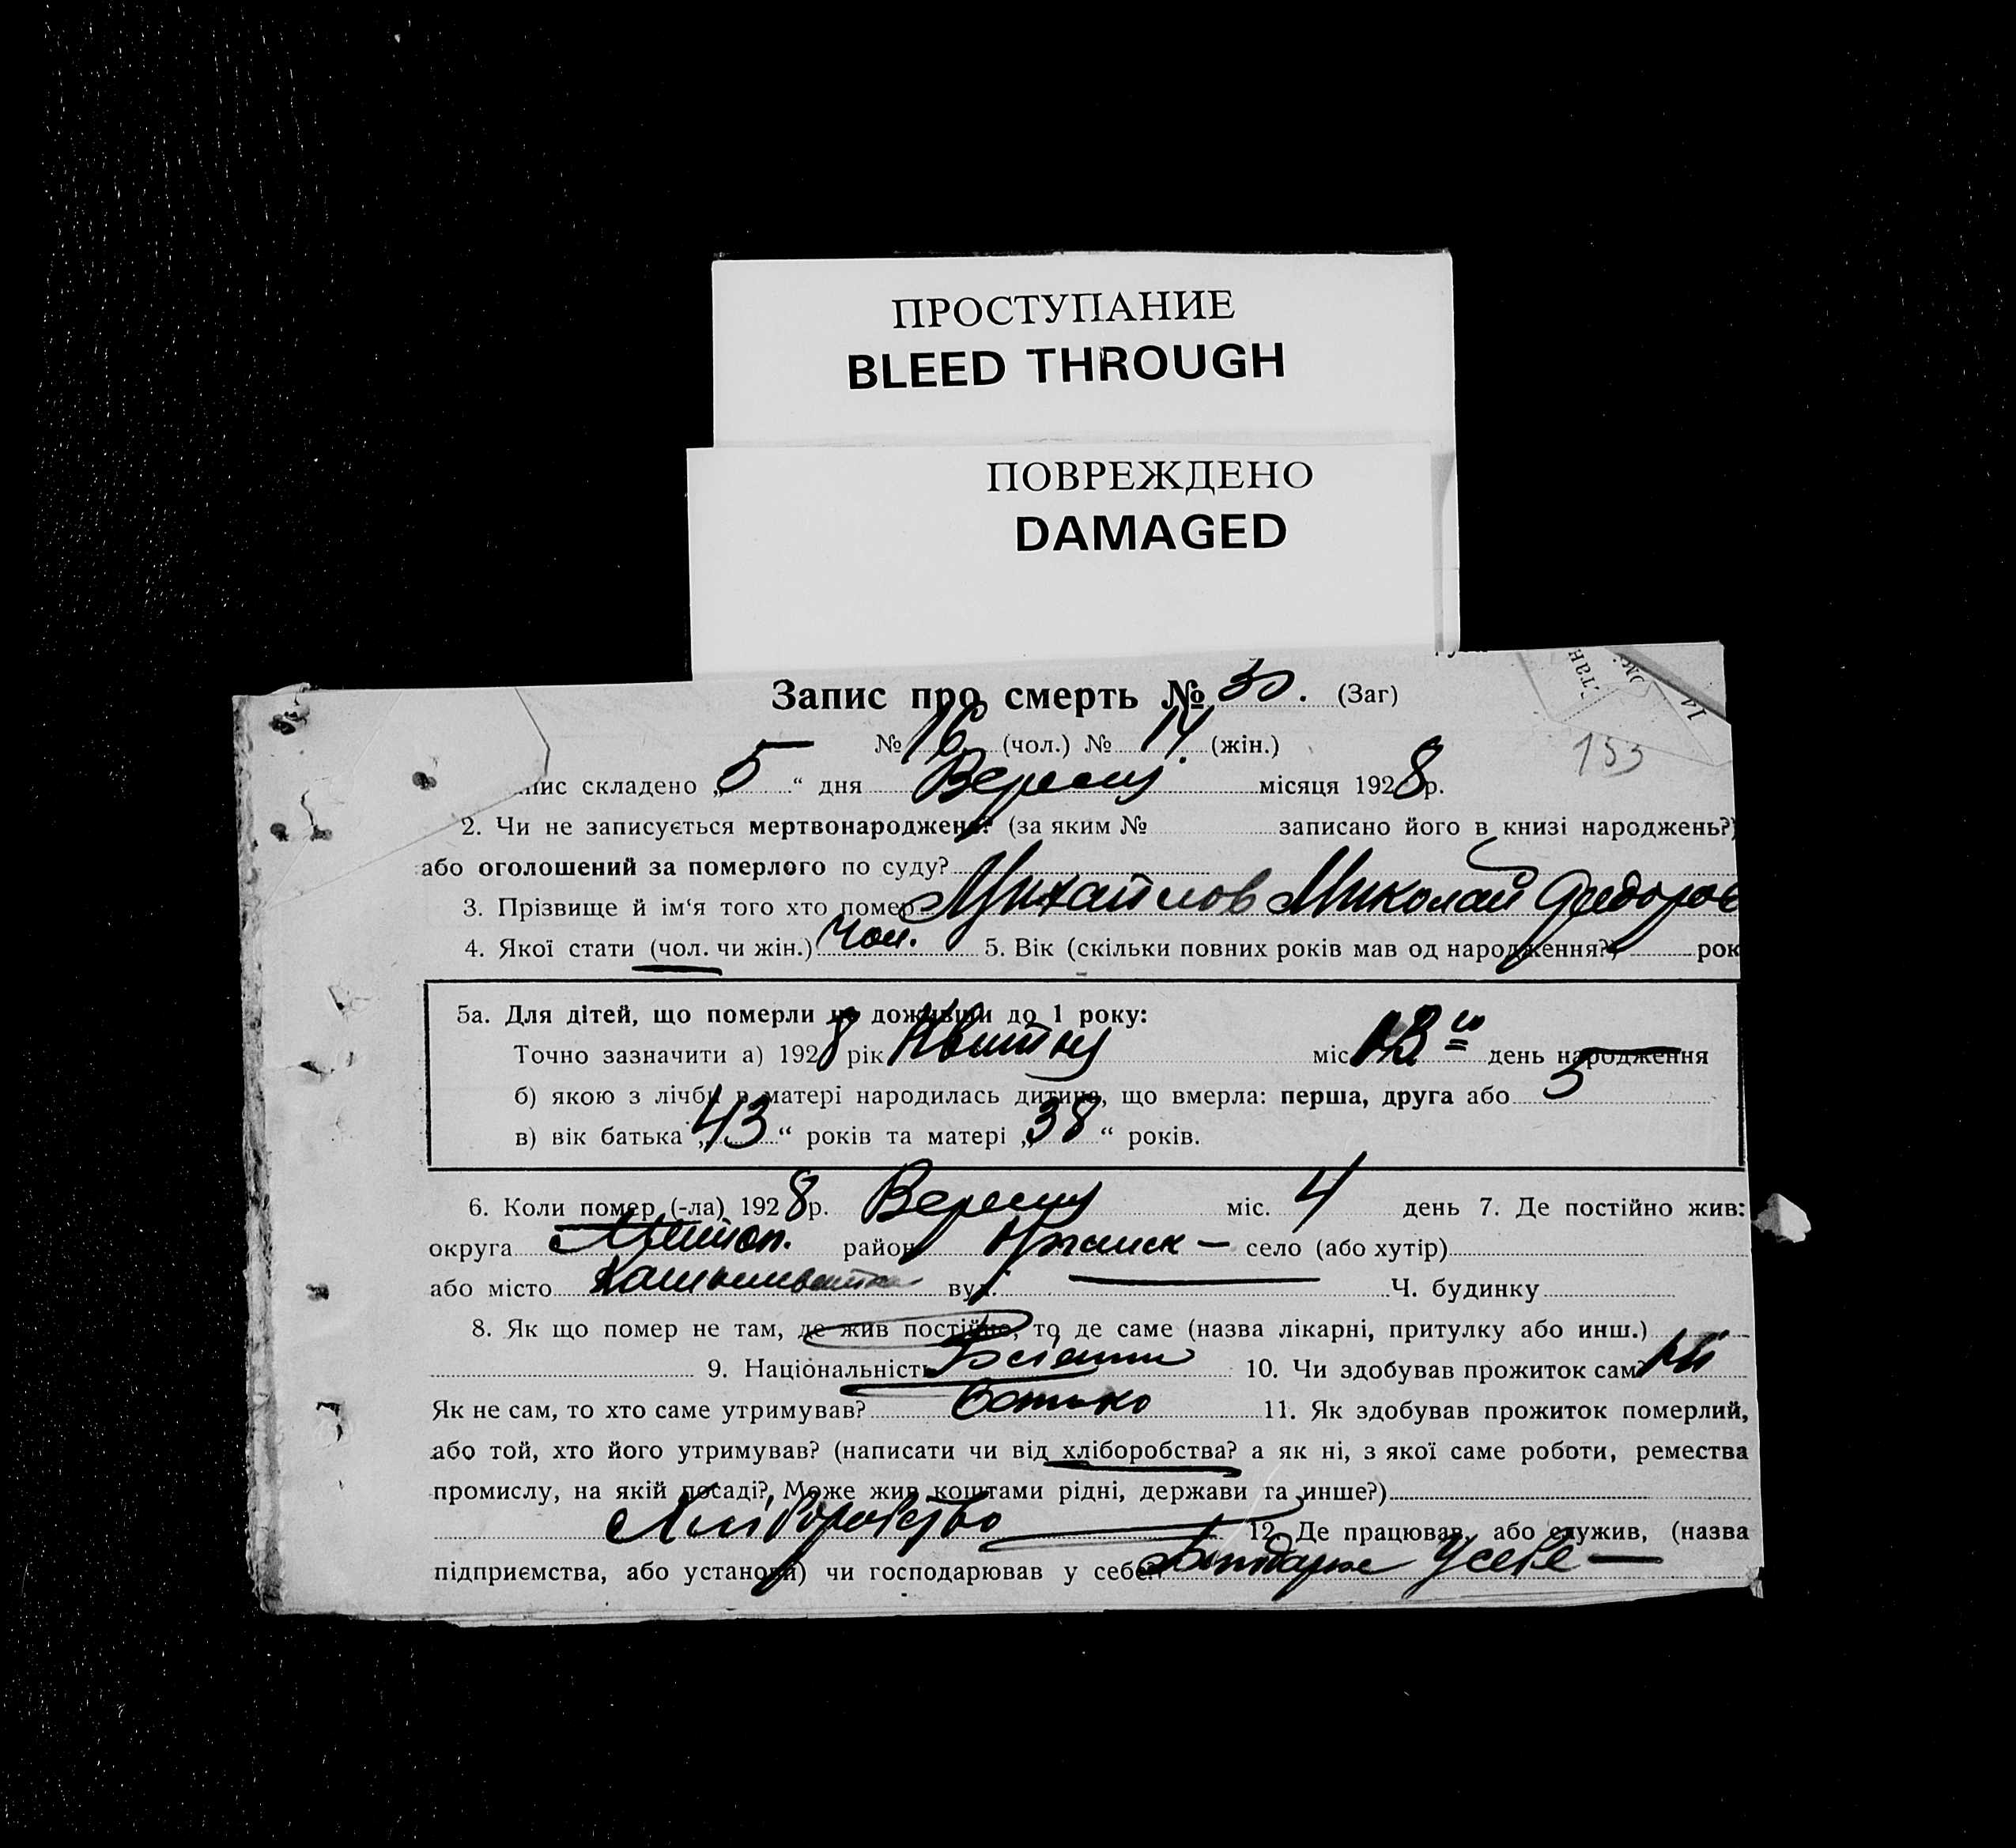 ПРОСТУПАНИЕ
BLEED THROUGH
ПОВРЕЖДЕНО
DAMAGED
Запис про смерть № 30. (Заг)
№ 16 (чол.) № 14 (жін.)
153
пис складено „5“ дня Вересня місяця 1928 р.
2. Чи не записується мертвонароджене? (за яким № записано його в книзі народжень?)
або оголошений за померлого по суду?
3. Прізвище й ім‘я того хто помер Михайлов Миколай Федоров
4. Якої стати (чол. чи жін.) Чол. 5. Вік (скільки повних років мав од народження?) рок
5а. Для дітей, що померли не доживши до 1 року:
Точно зазначити а) 1928 рік Квитня міс день народження
б) якою з лічби в матері народилась дитина, що вмерла: перша, друга або 5
в) вік батька „43“ років та матері „38“ років.
6. Коли помер (-ла) 1928 р. Вересня міс. 4 день 7. Де постійно жив:
округа район село (або хутір)
або місто вул. Ч. будинку
8. Як що помер не там, де жив постійно, то де саме (назва лікарні, притулку або инш.)
9. Національність 10. Чи здобував прожиток сам? Ні
Як не сам, то хто саме утримував? Батько 11. Як здобував прожиток померлий,
або той, хто його утримував? (написати чи від хліборобства? а як ні, з якої саме роботи, ремества
промислу, на якій посаді? Може жив коштами рідні, держави та инше?)
Хліборобство 12. Де працював, або служив, (назва
підприємства, або установи) чи господарював у себе? у себе